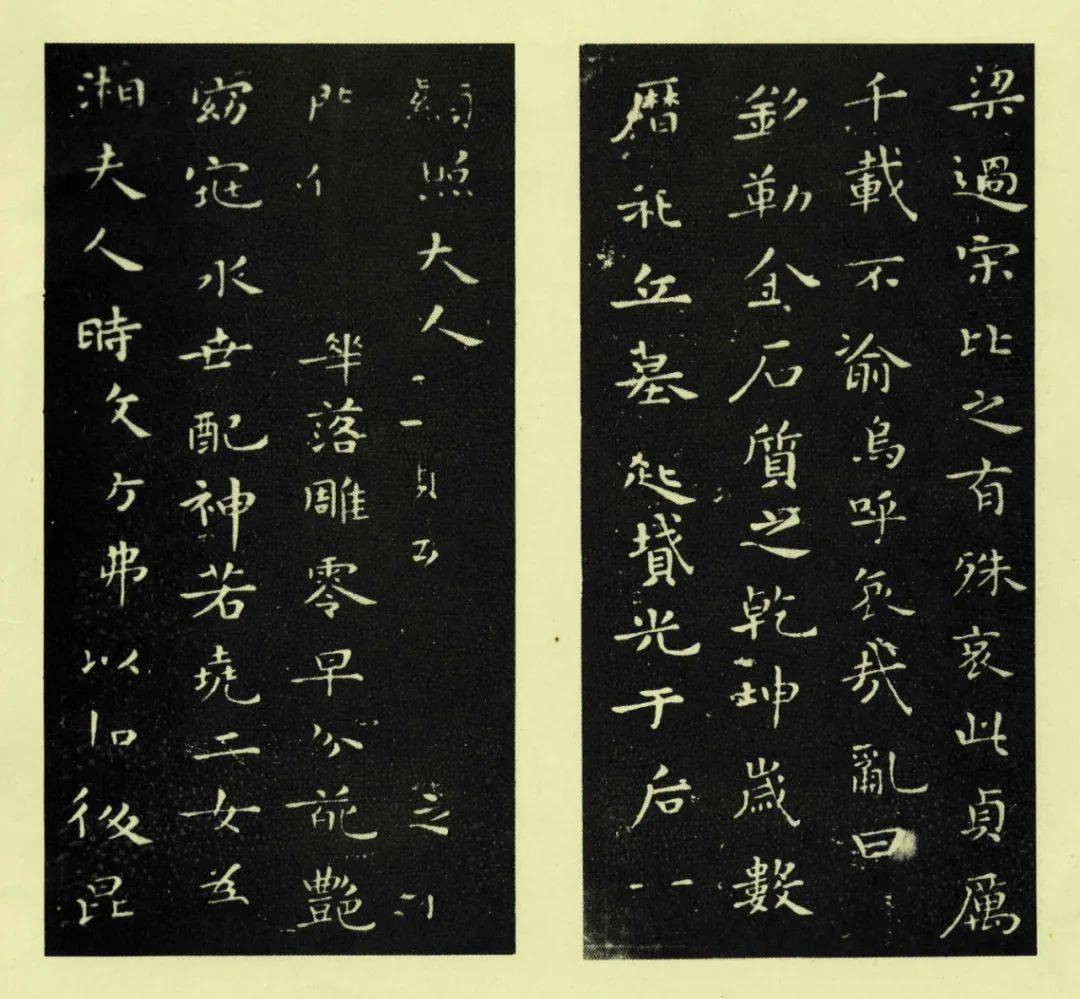 梁過宋比之有殊哀此貞厲
千載不渝烏呼哀哉亂曰
勒金石質之乾坤歲數
曆祀丘墓起墳光于后
照大人 貞 之
華落雕零早分葩艷
窈窕永世配神若堯二女為
湘夫人時效仿弗以 後昆